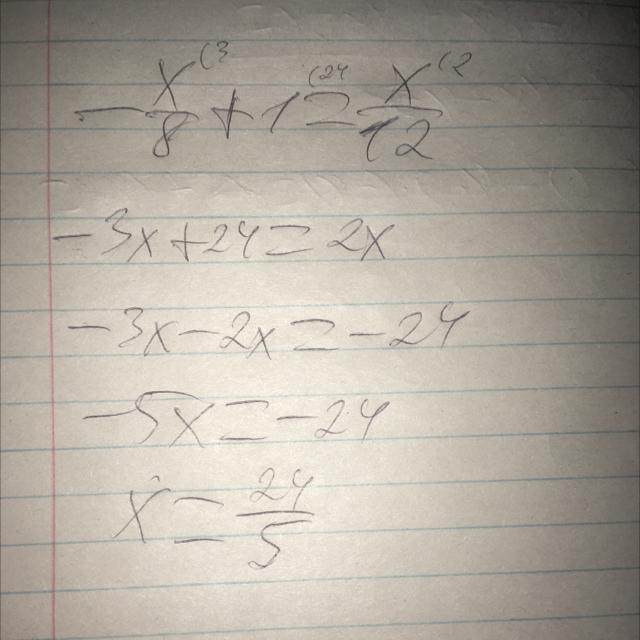 -x/8 (3 + 1 (24 = x/12 (2
-3x+24=2x
-3x-2x=-24
-5x=-24
x=24/5